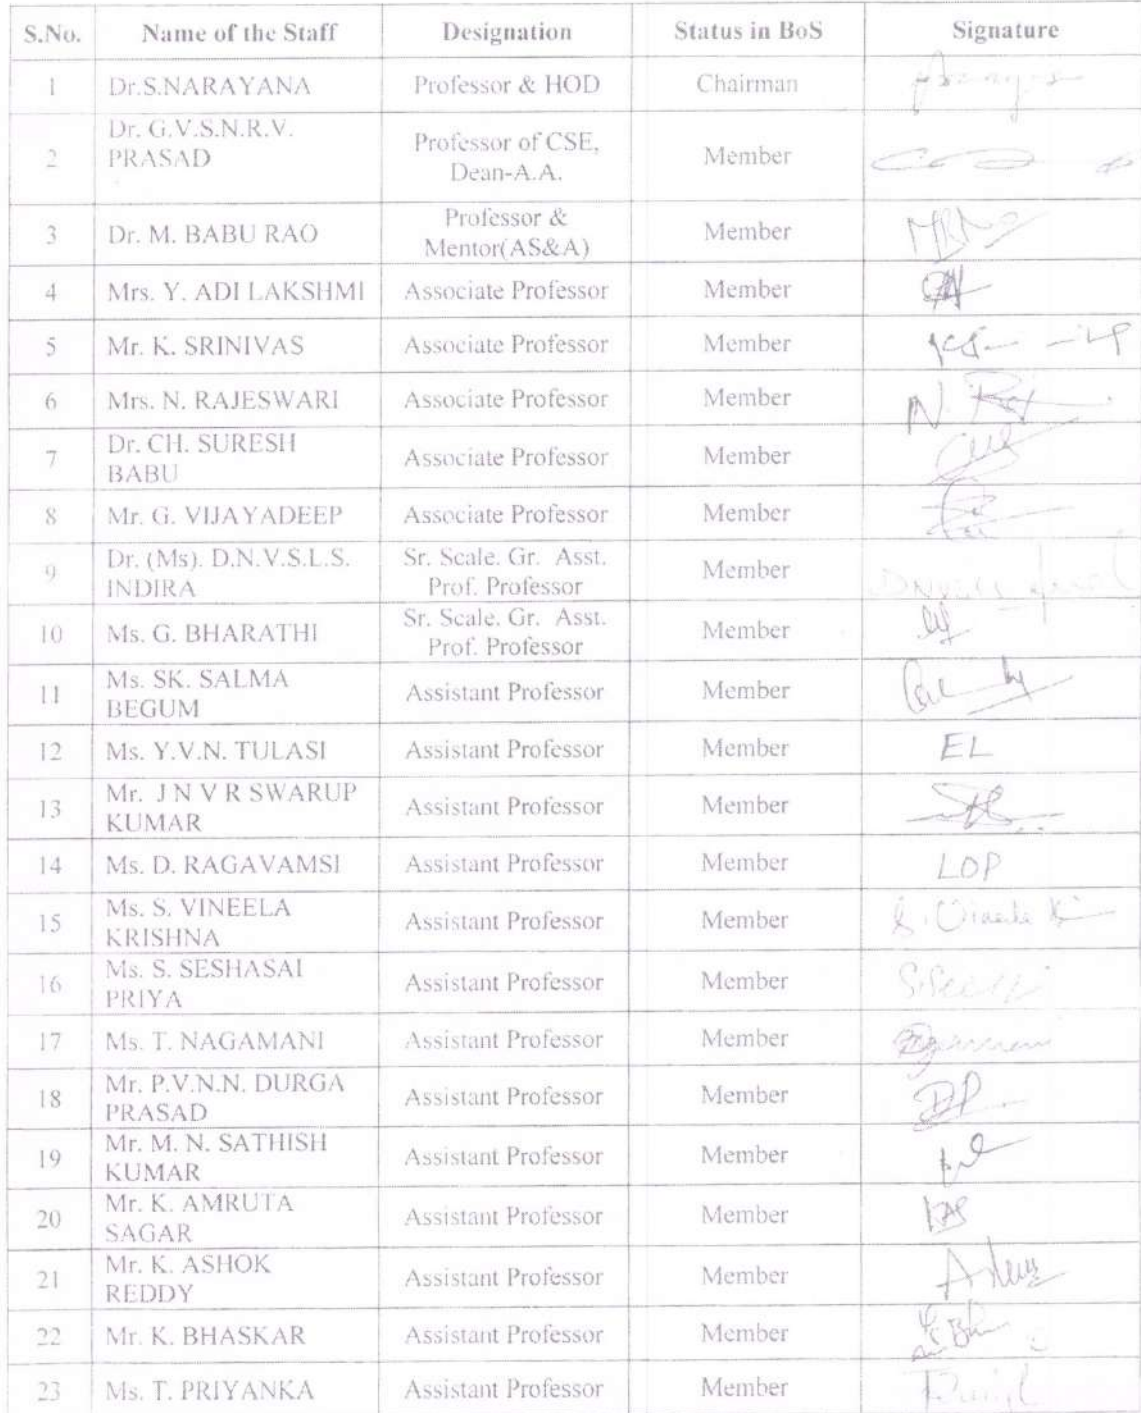 S.No. Name of the Staff Designation Status in BoS Signature
1 Dr.S.NARAYANA Professor & HOD Chairman
Dr. G.V.S.N.R.V.
2 PRASAD Professor of CSE, Member
Dean-A.A.
3 Dr. M. BABU RAO Professor & Member
Mentor(AS&A)
4 Mrs. Y. ADI LAKSHMI Associate Professor Member
5 Mr. K. SRINIVAS Associate Professor Member
6 Mrs. N. RAJESWARI Associate Professor Member
7 Dr. CH. SURESH Associate Professor Member
BABU
8 Mr. G. VIJAYADEEP Associate Professor Member
9 Dr. (Ms). D.N.V.S.L.S. Sr. Scale. Gr. Asst. Member
INDIRA Prof. Professor
10 Ms. G. BHARATHI Sr. Scale. Gr. Asst. Member
Prof. Professor
11 Ms. SK. SALMA Assistant Professor Member
BEGUM
12 Ms. Y.V.N. TULASI Assistant Professor Member EL
13 Mr. J N V R SWARUP Assistant Professor Member
KUMAR
14 Ms. D. RAGAVAMSI Assistant Professor Member LOP
15 Ms. S. VINEELA Assistant Professor Member
KRISHNA
16 Ms. S. SESHASAI Assistant Professor Member
PRIYA
17 Ms. T. NAGAMANI Assistant Professor Member
18 Mr. P.V.N.N. DURGA Assistant Professor Member
PRASAD
19 Mr. M. N. SATHISH Assistant Professor Member
KUMAR
20 Mr. K. AMRUTA Assistant Professor Member
SAGAR
21 Mr. K. ASHOK Assistant Professor Member
REDDY
22 Mr. K. BHASKAR Assistant Professor Member
23 Ms. T. PRIYANKA Assistant Professor Member